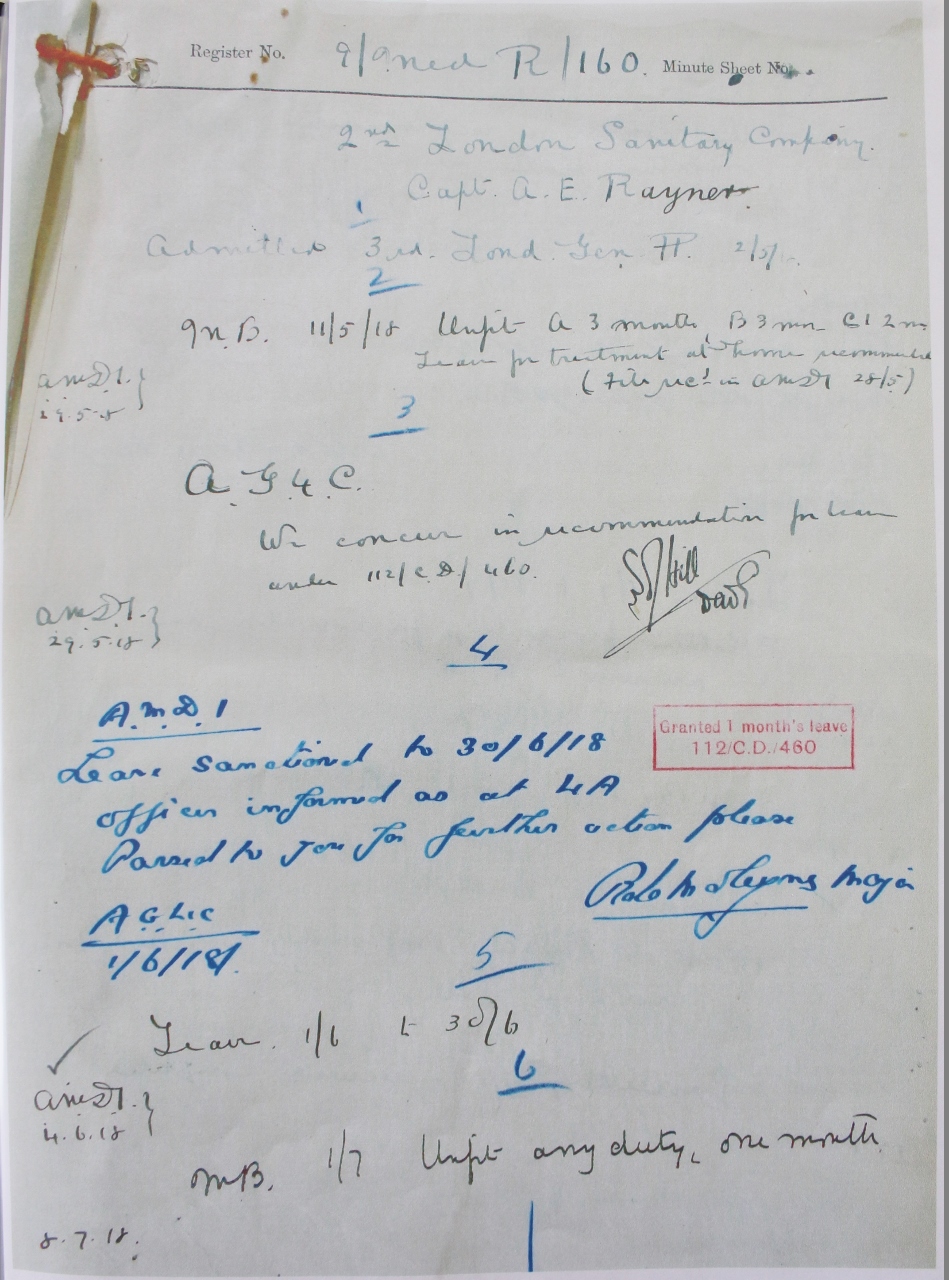 Register No. 9/Gned R/160. Minute Sheet No.
2nd London Sanitary Company.
Capt. A. E. Rayner.
1
Admitted 3rd. Lond. Gen. H. 2/5/
2
M.B. 11/5/18 Unfit A 3 months, B 3 mn C1 2 m
Leave for treatment at home recommended
(File recd in AMD1 28/5)
AMD1.
29.5.18
3
A. G. 4. C.
We concur in recommendation for leave
under 112/C.D/460.
Hill
AMD1.
29.5.18
4
A.M.D.1
Leave sanctioned to 30/6/18
officer informed as at 4A
Passed to you for further action please
Major
A.G.4.C
1/6/18
Granted 1 month's leave
112/C.D./460
5
Leave. 1/6 to 30/6
AMD1.
4.6.18
6
M.B. 1/7 Unfit any duty, one month
8.7.18.